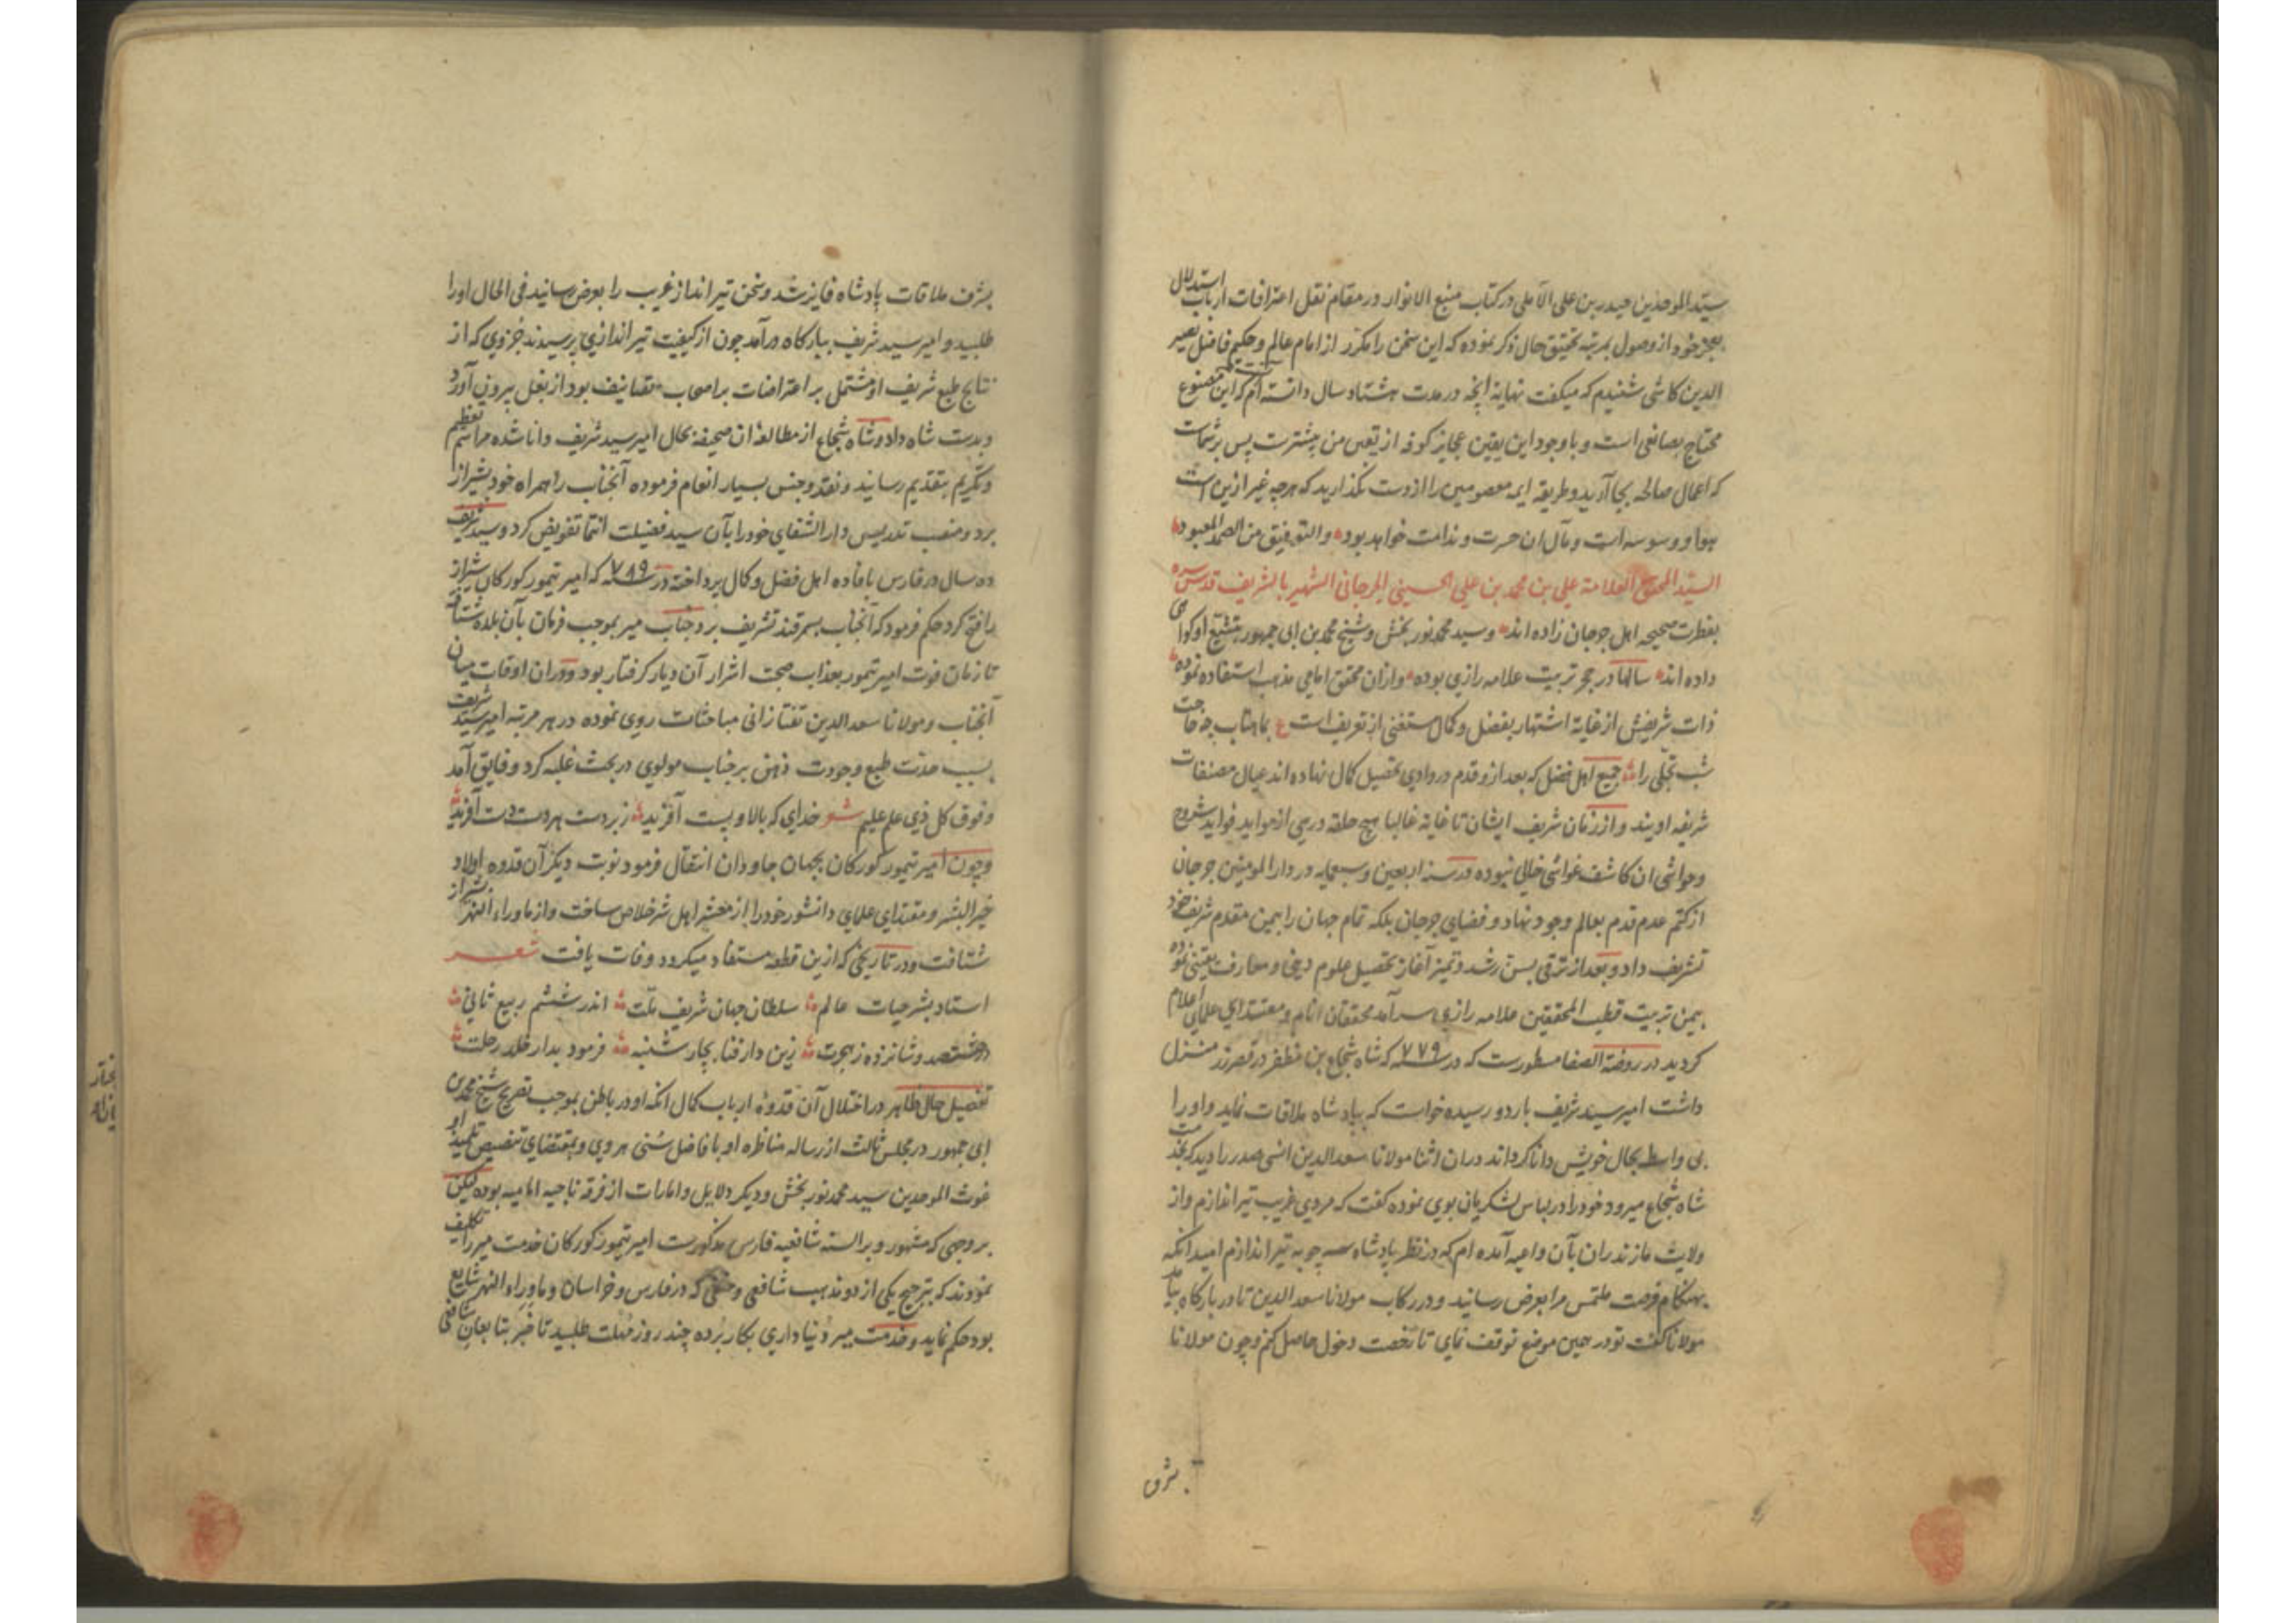 سید الموحدین حیدر بن علی الآملی در کتاب منبع الانوار در مقام نقل اعترافات ارباب استدلال
بعجز خود از وصول بمرتبه تحقیق حال ذکر نموده که این سخن را مکرر از امام عالم و حکیم فاضل نصیر
الدین کاشی شنیدم که میکفت نهایة آنچه در مدت هشتاد سال دانسته ام آنست که این مصنوع
محتاج بصانعی است و با وجود این یقین عجایز کوفه از یقین من بیشترست پس بر شمات
که اعمال صالحه بجا آرید و طریقه ایمه معصومین را از دست نکذارید که هر چه غیر ازین است
هوا و وسوسه است و مآل ان حسرت و ندامت خواهد بود والتوفیق من الصمد المعبود
السید المحقق العلامة علی بن محمد بن علی الحسینی الجرجانی الشهیر بالشریف قدس سره
بفطرت صحیحه اهل جرجان زاده اند و سید محمد نور بخش و شیخ محمد بن ابی جمهور بتشیع او کواهی
داده اند سالها در حجر تربیت علامه رازی بوده و ازان محقق امامی مذهب استفاده نموده
ذات شریفش از غایة اشتهار بفضل و کمال مستغنی از تعریف است ع بماهتاب چه حاجت
شب تجلی را جمیع اهل فضل که بعد ازو قدم در وادی تحصیل کمال نهاده اند عیال مصنفات
شریفه اویند و از زمان شریف ایشان تا غایة غالبا هیچ حلقه درس از مواید فواید شروح
و حواشی ان کاشف غواشی خالی نبوده در سنه اربعین و سبعمایه در دار المومنین جرجان
از کتم عدم قدم بعالم وجود نهاد و فضای جرجان بلکه تمام جهان را بیمن مقدم شریف خود
تشریف داد و بعد از ترقی بسن رشد و تمیز آغاز تحصیل علوم دینی و معارف یقینی نموده
بیمن تربیت قطب المحققین علامه رازی سر آمد محققان انام و مقتدای علمای اعلام
کردید در روضة الصفا مسطورست که در سنه ۷۷۹ که شاه شجاع بن مظفر در قصر زر منزل
داشت امیر سید شریف باردو رسیده خواست که بپادشاه ملاقات نماید و او را
بی واسطه بحال خویش دانا کرداند دران اثنا مولانا سعد الدین انسی صدر را دید که بخدمت
شاه شجاع میرود خود را در لباس لشکریان بوی نموده کفت که مردی غریب تیر اندازم و از
ولایت مازندران بآن داعیه آمده ام که در نظر پادشاه سه چوبه تیر اندازم امید آنکه
بهنکام فرصت ملتمس مرا بعرض رسانید و در رکاب مولانا سعد الدین تا در بارکاه بیامد
مولانا کفت تو در همین موضع توقف نمای تا رخصت دخول حاصل کنم و چون مولانا
بشرف
بشرف ملاقات پادشاه فایز شد و سخن تیر انداز غریب را بعرض رسانید فی الحال او را
طلبید و امیر سید شریف ببارکاه در آمد چون از کیفیت تیر اندازی پرسیدند جزوی که از
نتایج طبع شریف او مشتمل بر اعتراضات بر اصحاب تصانیف بود از بغل بیرون آورد
و بدست شاه داد و شاه شجاع از مطالعه ان صحیفه بحال امیر سید شریف دانا شده مراسم تعظیم
و تکریم بتقدیم رسانید و نقد و جنس بسیار انعام فرموده آنجناب را همراه خود بشیراز
برد و منصب تدریس دار الشفای خود را بآن سید فضیلت انتما تفویض کرد و سید شریف
ده سال در فارس بافاده اهل فضل و کمال پرداخته در سنه ۷۸۹ که امیر تیمور کورکان شیراز
را فتح کرد حکم فرمود که آنجناب بسمرقند تشریف برد و جناب میر بموجب فرمان بآن بلده شتافت
تا زمان فوت امیر تیمور بعذاب صحبت اشرار آن دیار کرفتار بود و دران اوقات میان
آنجناب و مولانا سعد الدین تفتازانی مباحثات روی نموده در هر مرتبه امیر سید شریف
بسبب حدت طبع و جودت ذهن بر جناب مولوی در بحث غلبه کرد و فایق آمد
و فوق کل ذی علم علیم شعر خدای که بالا و پست آفرید زبردست هر دست دست آفرید
و چون امیر تیمور کورکان بجهان جاودان انتقال فرمود نوبت دیکر آن قدوه اولاد
خیر البشر و مقتدای علمای دانشور خود را از معشر اهل شر خلاص ساخت و از ماوراء النهر بشیراز
شتافت و در تاریخی که ازین قطعه مستفاد میکردد وفات یافت شعر
استاد بشر حیات عالم سلطان جهان شریف ملت اندر ششم ربیع ثانی
در هشتصد و شانزده ز هجرت زین دار فنا بچار شنبه فرمود بدار خلد رحلت
تفصیل حال ظاهر در اختلال آن قدوه ارباب کمال انکه او در باطن بموجب تصریح شیخ محمد بن
ابی جمهور در مجلس ثالث از رساله مناظره او با فاضل سنی هروی و بمقتضای تنصیص تلمیذ او
غوث الموحدین سید محمد نور بخش و دیکر دلایل و امارات از فرقه ناجیه امامیه بوده لیکن
بر وجهی که مشهور و بر السنه شافعیه فارس مذکورست امیر تیمور کورکان خدمت میر را تکلیف
نمودند که بترجیح یکی از دو مذهب شافعی و حنفی که در فارس و خراسان و ماوراء النهر شایع
بود حکم نماید و خدمت میر دنیا داری بکار برده چند روز مهلت طلبید تا خبر بتابعان شافعی